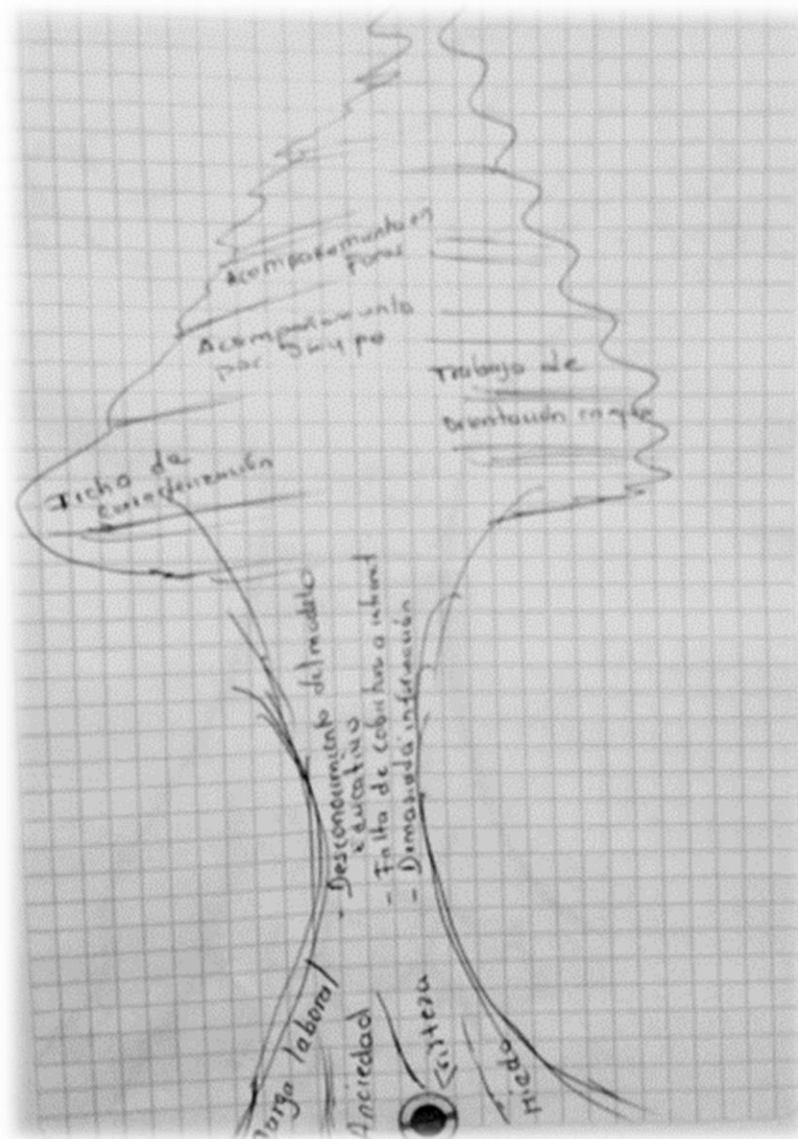 Acompañamiento en
Foros
Acompañamiento
por grupo
Trabajo de
Orientación
Ficha de
Caracterización
- Desconocimiento del modelo
educativo
- Falta de cobertura a internet
- Demasiada información
laboral
Anciedad
Tristeza
Miedo